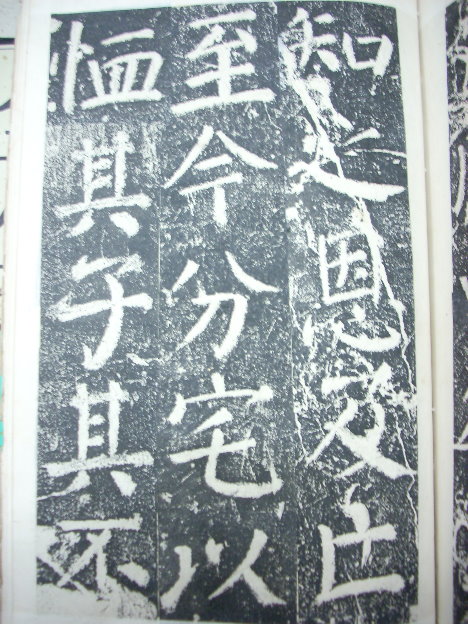 知之恩及亡
至今分宅以
恤其子其不